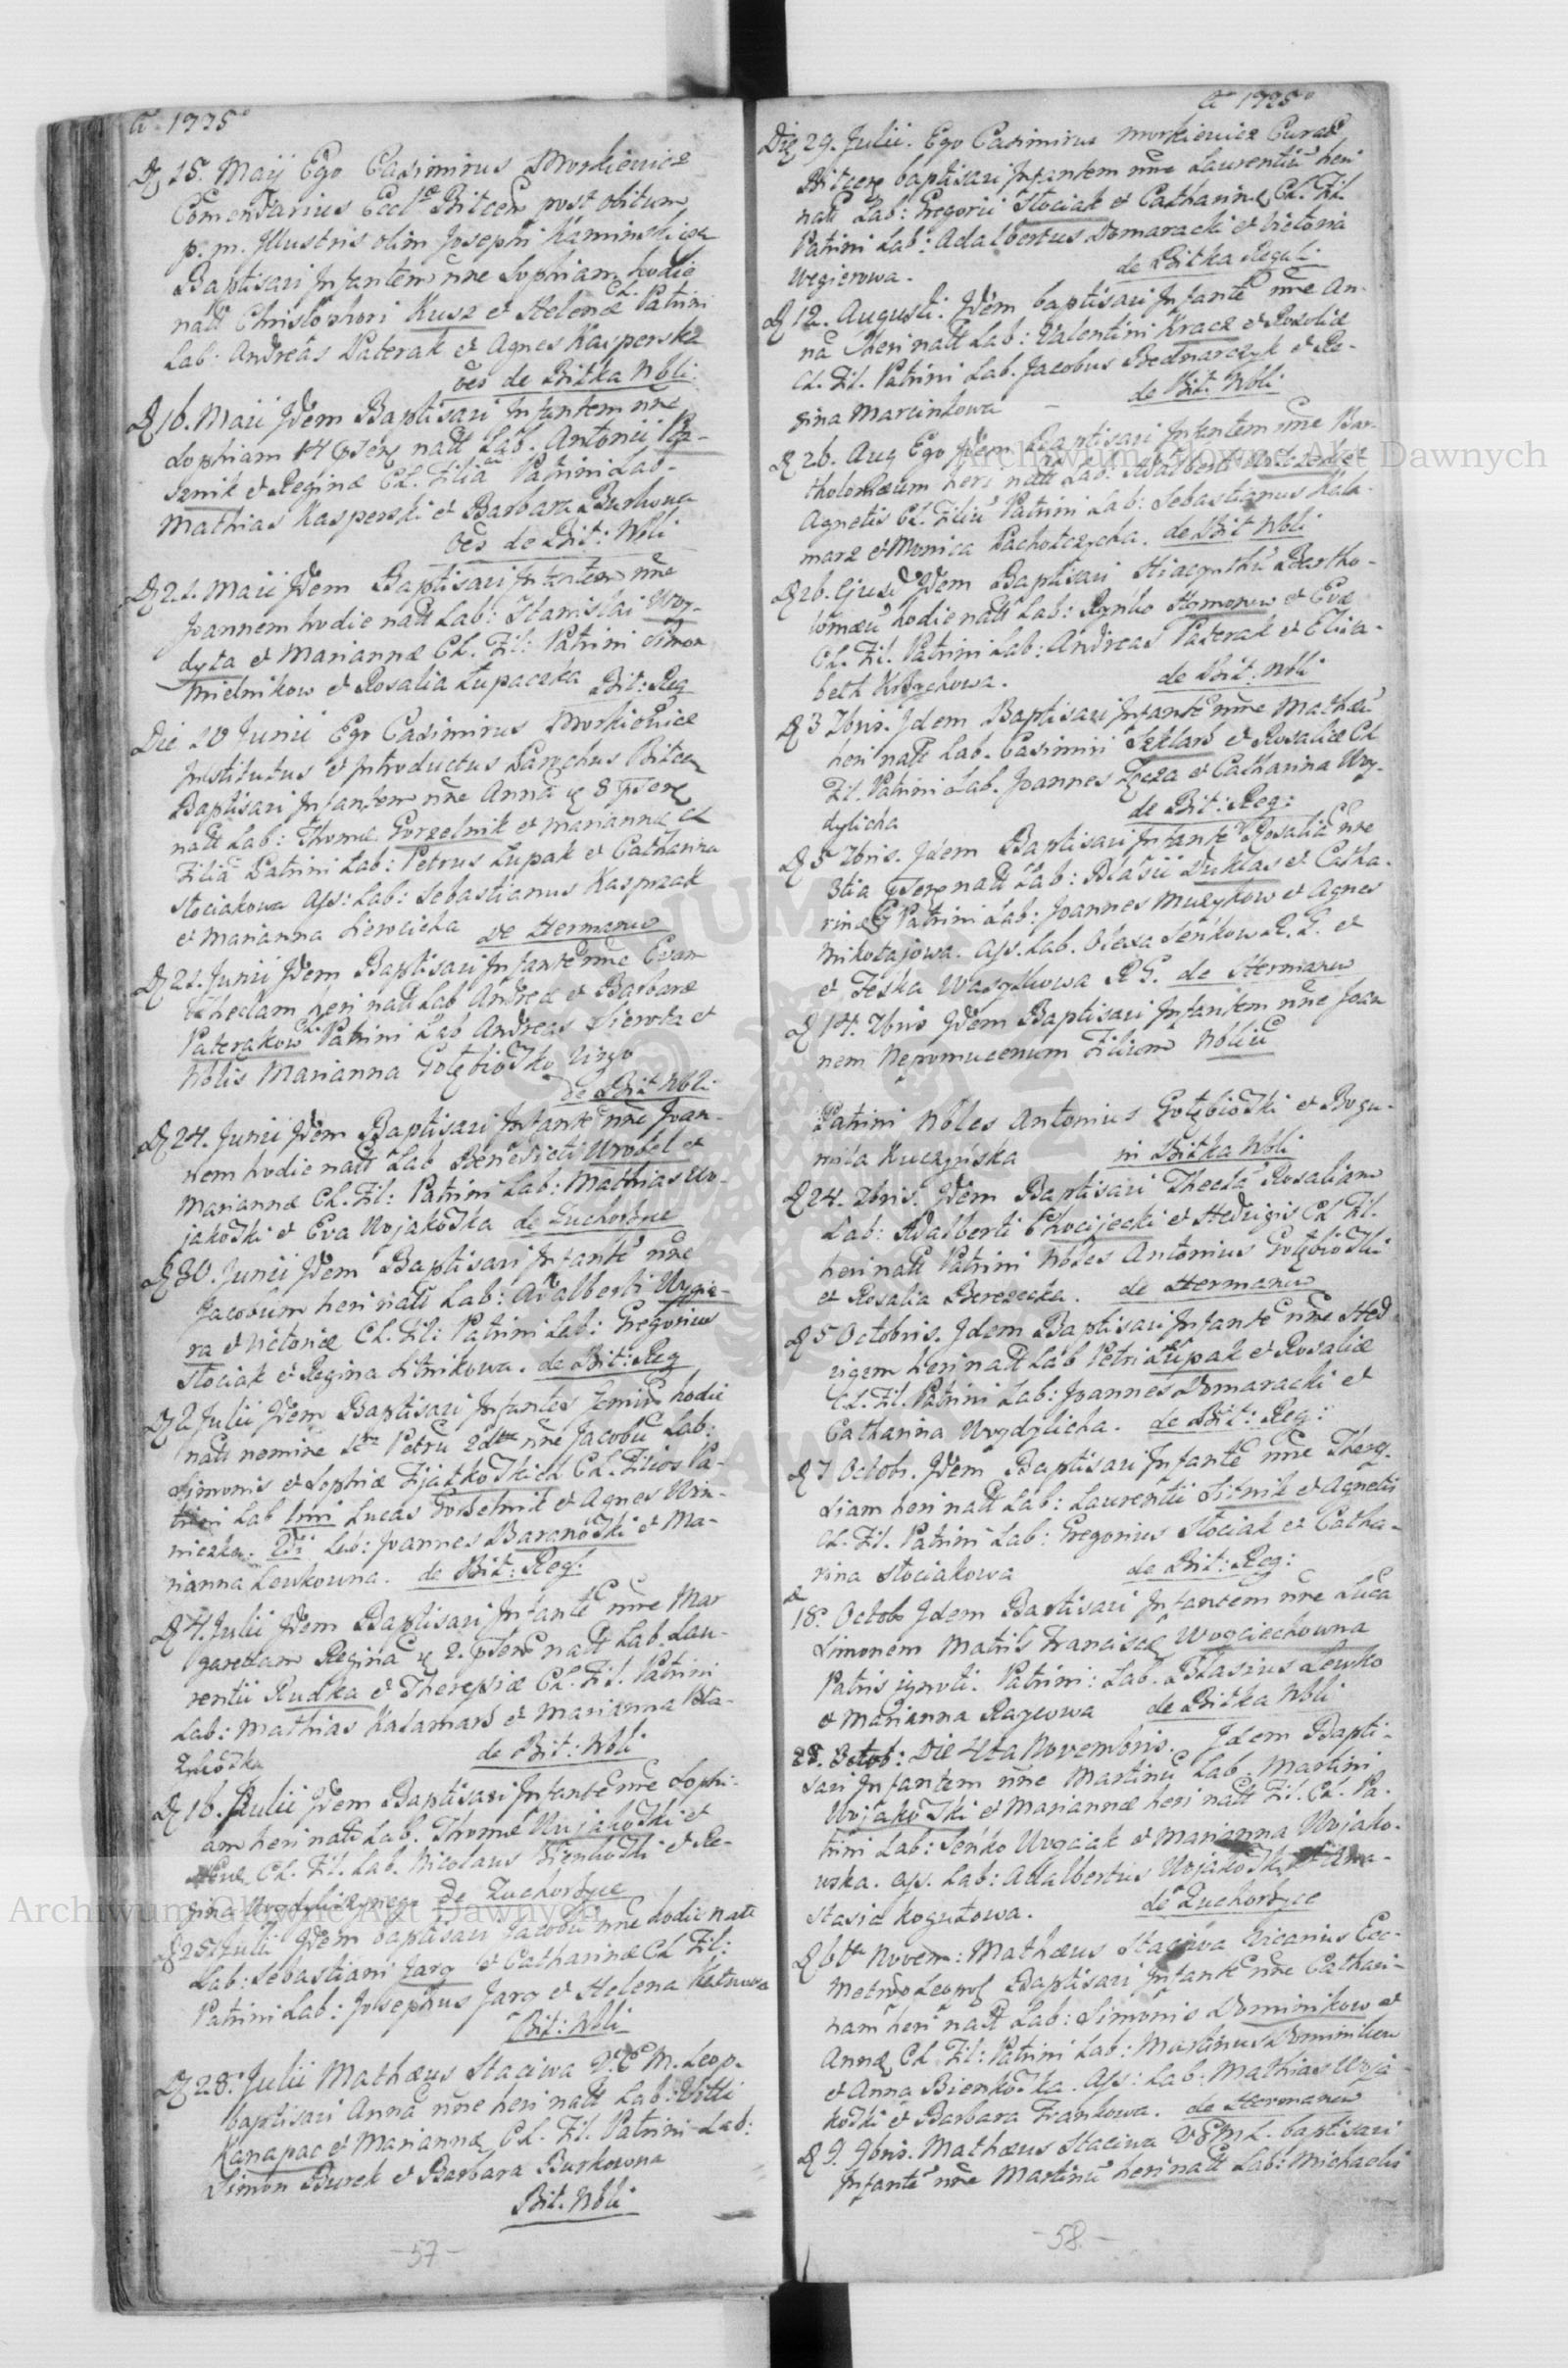 Aº 1775º
D 15. Maij Ego Casimirus Morkiewicz
Comendarius Eccl Bitcen post obitum
p. m. Illustris olim Josephi Kaminski
Baptisavi Infantem nne Sophiam hodie
natt Christophori Kusz et Helenæ CL. Patrini
Lab. Andreas Paterak et Agnes Kasperska
oes de Bitka Nbli
D 16. Maii Idem Baptisavi Infantem nne
Sophiam 14 natt Lab. Antonii
sznik et Reginæ CL. Filia Patrini Lab.
Mathias Kasperski et Barbara Burkowna
Oes de Bit: Nbli
D 21. Maii Idem Baptisavi Infantem nne
Joannem hodie natt Lab: Stanislai Woy-
dyla et Mariannæ CL. Fil: Patrini Simon
Mielnikow et Rosalia Łupaczka Bit: Reg
Die 10 Junii Ego Casimirus Morkiewicz
Institutus et Introductus Parochus Bitcen
Baptisavi Infantem nne Anna 8
natt Lab: Thomæ Gorzelnik et Mariannæ CL
Filia Patrini Lab: Petrus Łupak et Catharina
Stociakowa Ass: Lab: Sebastianus Kasprzak
et Marianna Sierocicha de Hermanw
D 21. Junii Idem Baptisavi Infante nne Evam
Theclam heri natt Lab Andreæ et Barbaræ
Paterakow CL. Patrini Lab Andreas Sierota et
Nblis Marianna Gołębioska Virgo
de Bit Nbli
D 24. Junii Idem Baptisavi Infante nne Joan-
nem hodie natt Lab Benedicti Wrobel et
Mariannæ CL. Fil: Patrini Lab: Mathias Wo-
jakoski et Eva Wojakoska de Zuchorzyce
D 30. Junii Idem Baptisavi Infante nne
Jacobum heri natt Lab: Adalberti Wygie-
ra et Victoriæ CL. Fil: Patrini Lab: Gregorius
Stociak et Regina Sitnikowa. de Bit: Reg
D 2 Julii Idem Baptisavi Infantes hodie
nati nomine Petru nne Jacobu Lab:
Simonis et Sophiæ Fijatkoskich CL. Filios Pa-
trini Lab 1mi Lucas Gorzelnik et Agnes Win-
niczka. 2di Lab: Joannes Baranoski et Ma-
rianna Lewkowna. de Bit: Reg.
D 4. Julii Idem Baptisavi Infante nne Mar
garettam Regina 2. natt Lab. Lau-
rentii Rudka et Theresiæ CL. Fil. Patrini
Lab: Mathias Kalamarz et Marianna Bła-
de Bit: Nbli
D 16. Julii Idem Baptisavi Infante nne Sophi-
am heri natt Lab. Thomæ Wojakoski et
CL. Fil. Lab. Nicolaus Bienkoski et Re-
gina de Zuchorzyce
D 25 Julii Idem baptisavi Jacobu nne hodie natt
Lab: Sebastiani Jarg et Catharinæ CL Fil:
Patrini Lab: Josephus Jarg et Helena
Bit: Nbli
D 28. Julii Mathæus Staciwa V. E M. Leop.
baptisavi Anna nne heri natt Lab: Vitti
Kanapac et Mariannæ CL. Fil. Patrini Lab:
Simon Burek et Barbara Burkowna
Bit. Nbli
- 57 -
Aº 1775º
Die 29. Julii. Ego Casimirus Morkiewicz Curat
Bitcen baptisavi Infantem nne Laurentiu heri
natt Lab: Gregorii Stociak et Catharinæ CL. Fil.
Patrini Lab: Adalbertus Domaracki et Victoria
Wegierowa. de Bitka Regal:
D 12. Augusti: Idem baptisavi Infante nne An-
na heri natt Lab: Valentini Kracz et Rosaliæ
CL. Fil. Patrini Lab. Jacobus Bednarczyk et Re-
gina Marcinkowa - de Bit. Nbli
D 26. Aug Ego Idem Baptisavi Infantem nne Bar-
tholomæum heri natt Lab. Adalberti et
Agnetis CL. Filiu Patrini Lab: Sebastianus Kala-
marz et Monica Pachołczycha. de Bit Nbli
D 26. Ejusd Idem Baptisavi Hiacynthu Bartho-
lomæu hodie natt Lab: Hrynko Szymonow et Evæ
CL. Fil. Patrini Lab: Andreas Paterak et Elisa-
beth de Bit. Nbli
D 3 7bris. Idem Baptisavi Infante nne Mathæu
heri natt Lab. Casimiri Szklarz et Rosaliæ CL
Fil. Patrini Lab. Joannes et Catharina Woy-
dylicha de Bit: Reg:
D 5 7bris. Idem Baptisavi Infante Rosalia nne
3tia natt Lab: Blasii Duklas et Catha-
rinæ Patrini Lab: Joannes Muzykow et Agnes
Mikołajowa. Ass. Lab. Olexa Senkow R. G. et
et Feska Wasylkowa R G. de Hermanw
D 14. 7bris Idem Baptisavi Infantem nne Joan
nem Nepomucenum Filium Nbliu
Patrini Nbles Antonius Gołębioski et Bogu-
miła Kuczyńska in Bitka Nbli
D 24. 7bris. Idem Baptisavi Thecla Rosaliam
Lab: Adalberti Chocijecki et Hedvigis CL Fil.
heri natt Patrini Nbles Antonius Gołębioski
et Rosalia Berezecka. de Hermanw
D 5 Octobris. Idem Baptisavi Infante nne Hed
vigem heri natt Lab Petri Łupak et Rosaliæ
CL. Fil. Patrini Lab: Joannes Domaracki et
Catharina Woydylicha. de Bit: Reg:
D 7 Octobr. Idem Baptisavi Infante nne There-
siam heri natt Lab: Laurentii Sitnik et Agnetis
CL. Fil. Patrini Lab: Gregorius Stociak et Catha-
rina Stociakowa de Bit: Reg:
18. Octob Idem Baptisavi Infantem nne Luca
Simonem Matris Franciscæ Woyciechowna
Patris ignoti. Patrini: Lab. Blasius Lewko
et Marianna Rajcowa de Bitka Nbli
28. Octob: Die 4ta Novembris. Idem Bapti-
savi Infantem nne Martinu Lab. Martini
Wojakoski et Mariannæ heri natt Fil. CL. Pa-
trini Lab: Seńko Woyciak et Marianna Wojako-
wska. Ass. Lab: Adalbertus Wojakoski et Ana-
stasia Kogutowa. de Zuchorzyce
D 6ta Novem: Mathæus Staciwa Vicarius Ecc-
Metropo Leopol Baptisavi Infante nne Cathari-
nam heri natt Lab: Simonis Dominikow et
Annæ CL Fil: Patrini Lab: Martinus Dominikow
et Anna Bienkoska. Ass: Lab: Mathias Woja
koski et Barbara Frankowa. de Hermanw
D 9. 9bris. Mathæus Staciwa V E M L. baptisavi
Infante nne Martinu heri natt Lab: Michaelis
- 58 -
Archiwum Główne Akt Dawnych
Archiwum Główne Akt Dawnych